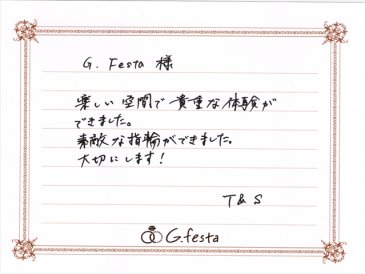 G. Festa 様
楽しい空間で貴重な体験が
できました。
素敵な指輪ができました。
大切にします!
T & S
G.festa